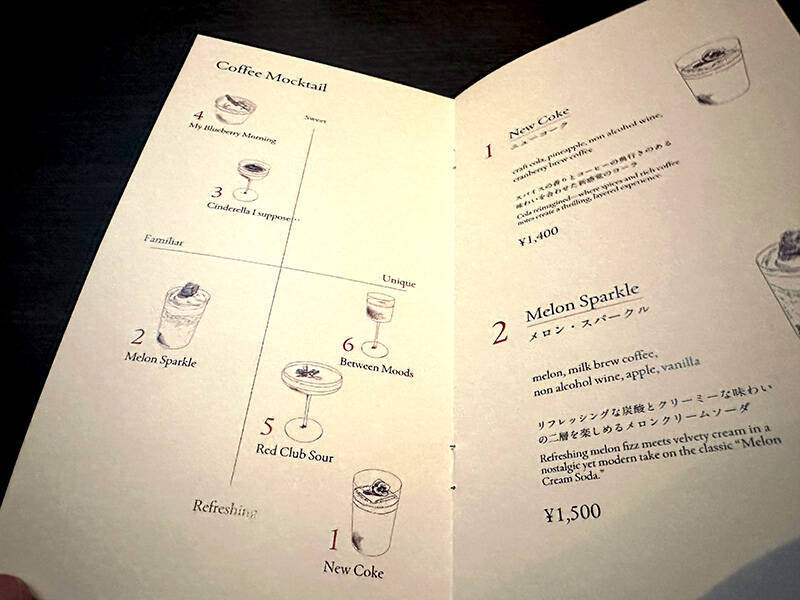 Coffee Mocktail
Sweet
4
My Blueberry Morning
3
Cinderella I suppose…
Familiar
Unique
2
Melon Sparkle
6
Between Moods
5
Red Club Sour
Refreshing
1
New Coke
1 New Coke
ニューコーク
craft cola, pineapple, non alcohol wine,
cranberry brew coffee
スパイスの香りとコーヒーの奥行きのある
味わいを合わせた新感覚のコーラ
Cola reimagined—where spices and rich coffee
notes create a thrilling, layered experience.
¥1,400
2 Melon Sparkle
メロン・スパークル
melon, milk brew coffee,
non alcohol wine, apple, vanilla
リフレッシングな炭酸とクリーミーな味わい
の二層を楽しめるメロンクリームソーダ
Refreshing melon fizz meets velvety cream in a
nostalgic yet modern take on the classic “Melon
Cream Soda.”
¥1,500